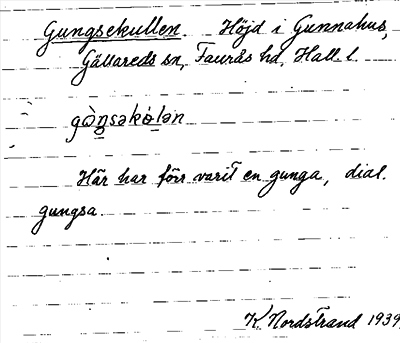 Gungsekullen. Höjd i Gunnahus,
Gällareds sn, Faurås hd, Hall. l.
gòŋsəkòlən
Här har förr varit en gunga, dial.
gungsa.
K. Nordstrand 1939.